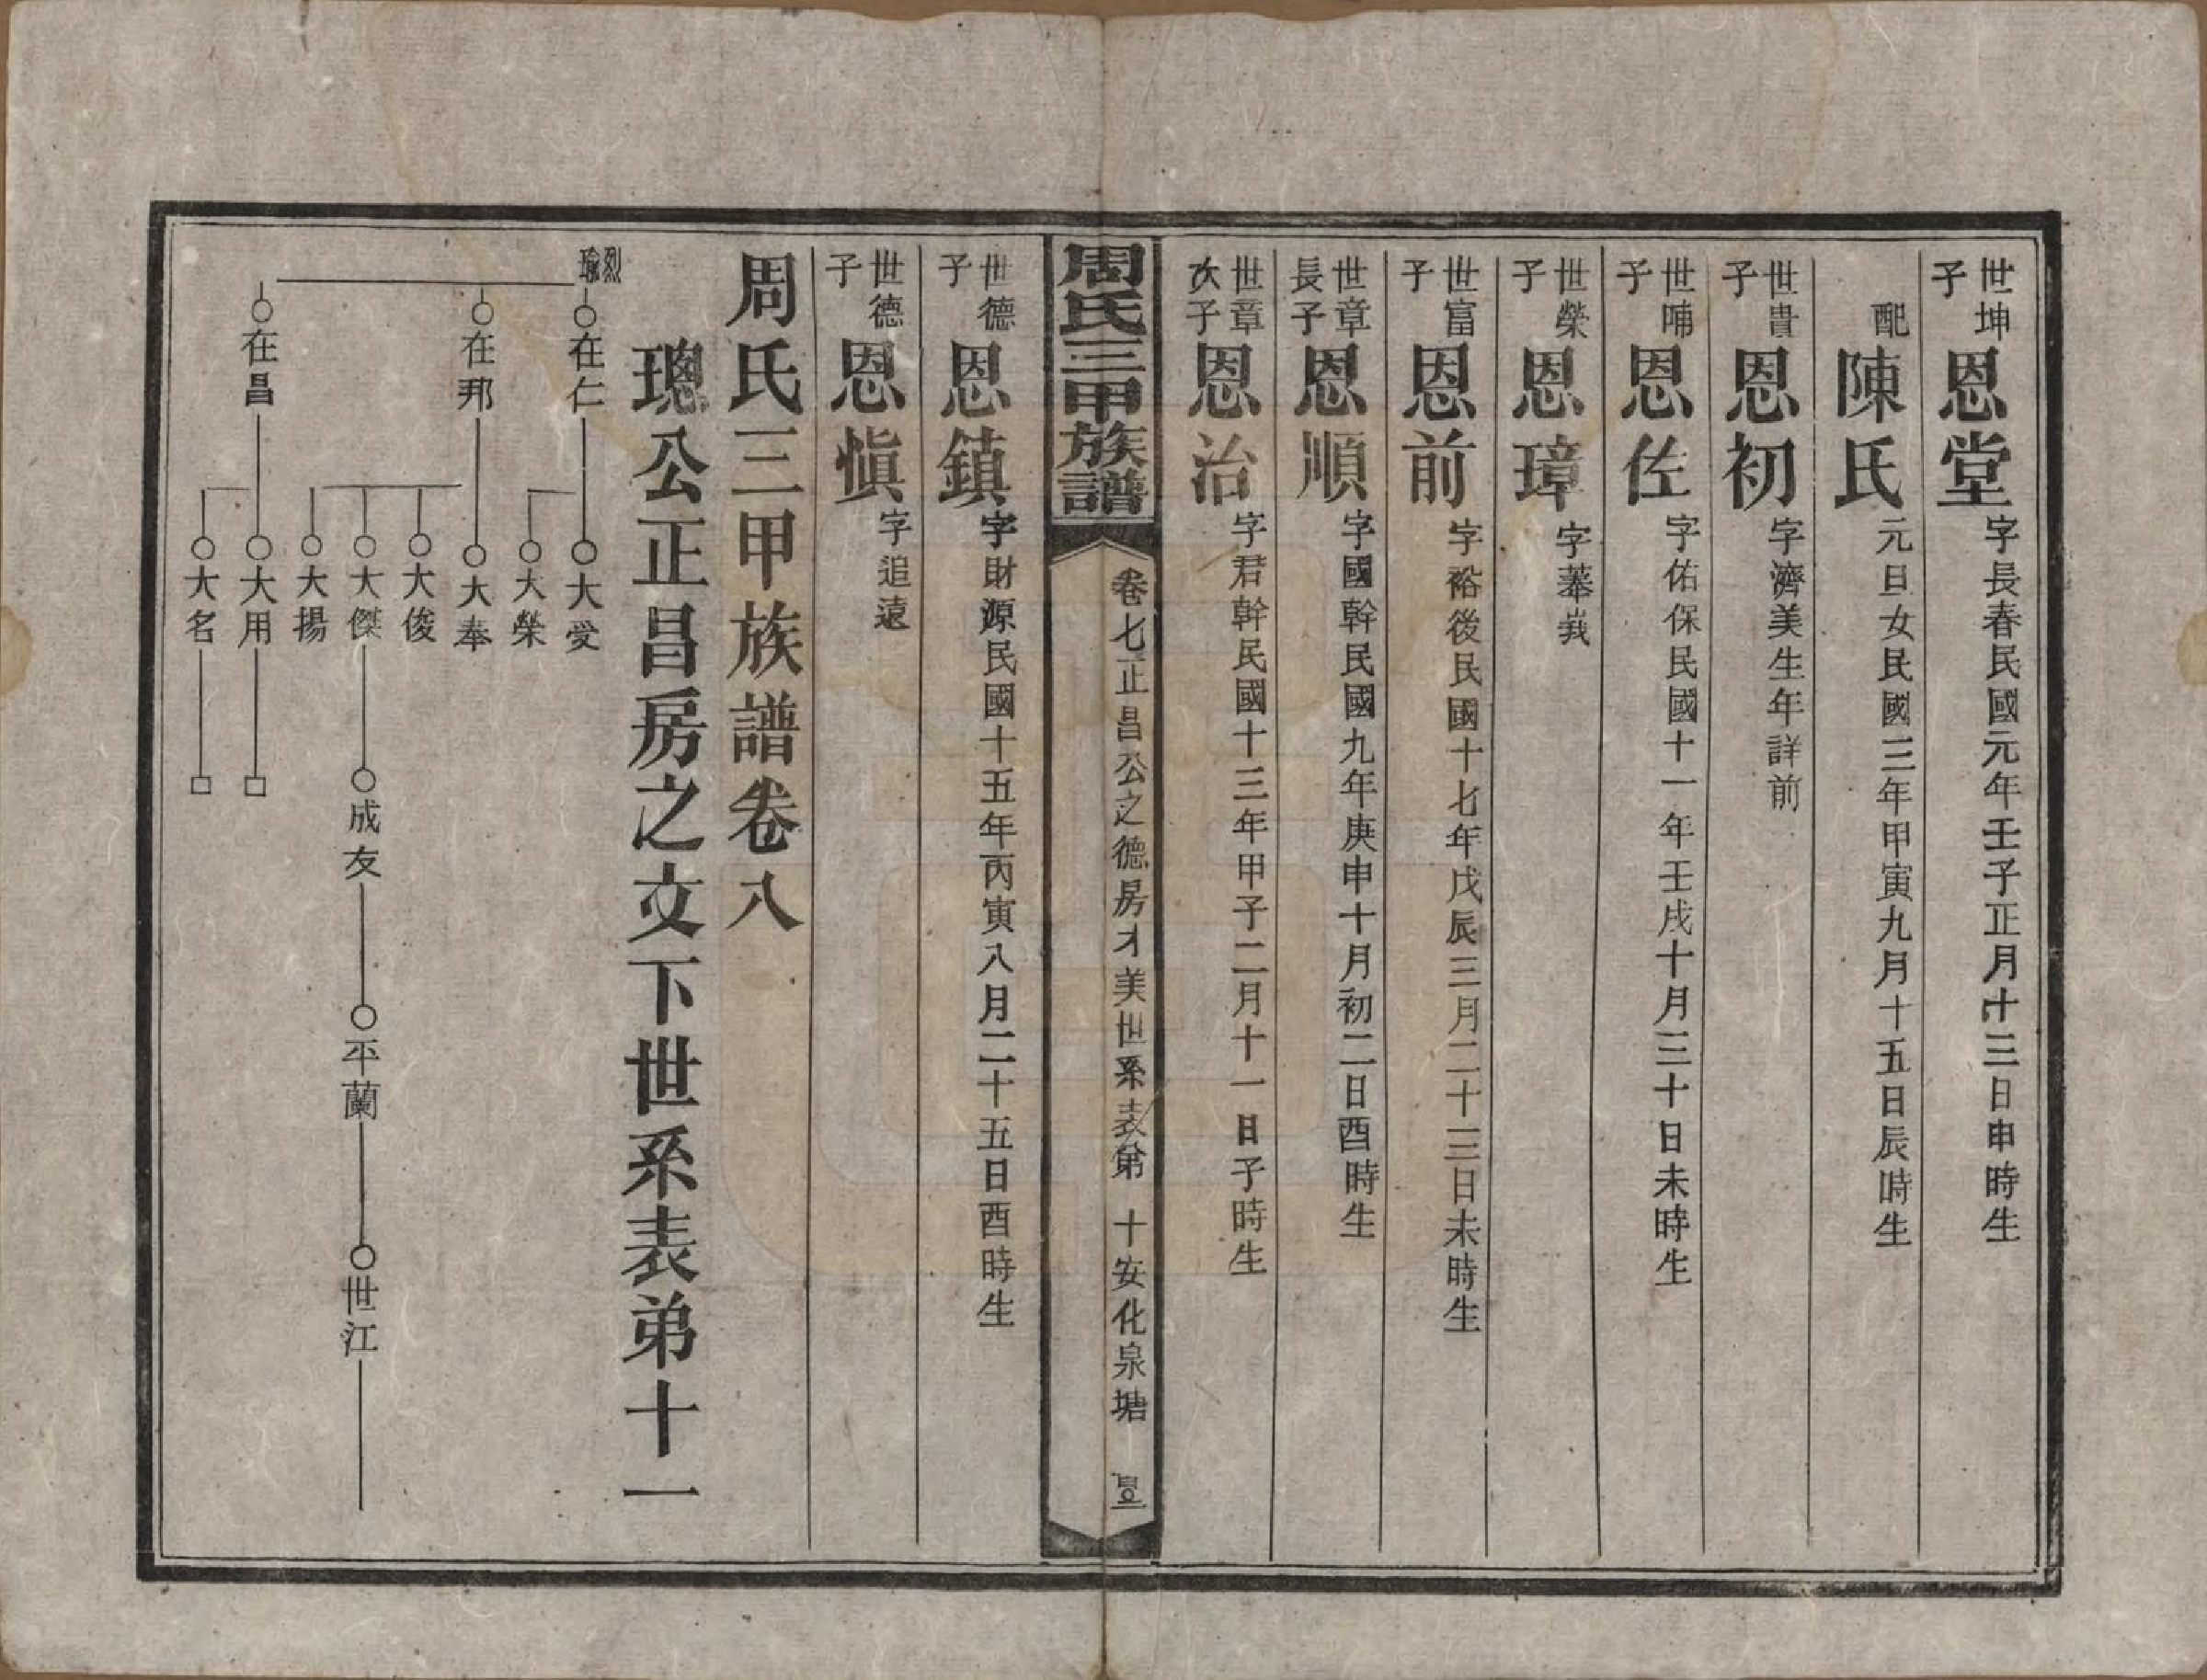 世坤子 恩堂 字長春民國元年壬子正月十三日申時生
配 陳氏 元旦女民國三年甲寅九月十五日辰時生
世貴子 恩初 字濟美生年詳前
世哺子 恩佐 字佑保民國十一年壬戌十月三十日未時生
世榮子 恩璋 字莪
世富子 恩前 字裕後民國十七年戊辰三月二十三日未時生
世章長子 恩順 字國幹民國九年庚申十月初二日酉時生
世章次子 恩治 字君幹民國十三年甲子二月十一日子時生
周氏三甲族譜 卷七正昌公之德房才美世系表第 十安化泉塘
世德子 恩鎮 字財源民國十五年丙寅八月二十五日酉時生
世德子 恩慎 字追遠
周氏三甲族譜卷八
璁公正昌房之文下世系表弟十一
烈瑜
○在仁 ○大愛
○大榮
○在邦 ○大奉
○大俊
○大傑 ○成友 ○平蘭 ○世江
○大揚
○在昌 ○大用 □
○大名 □